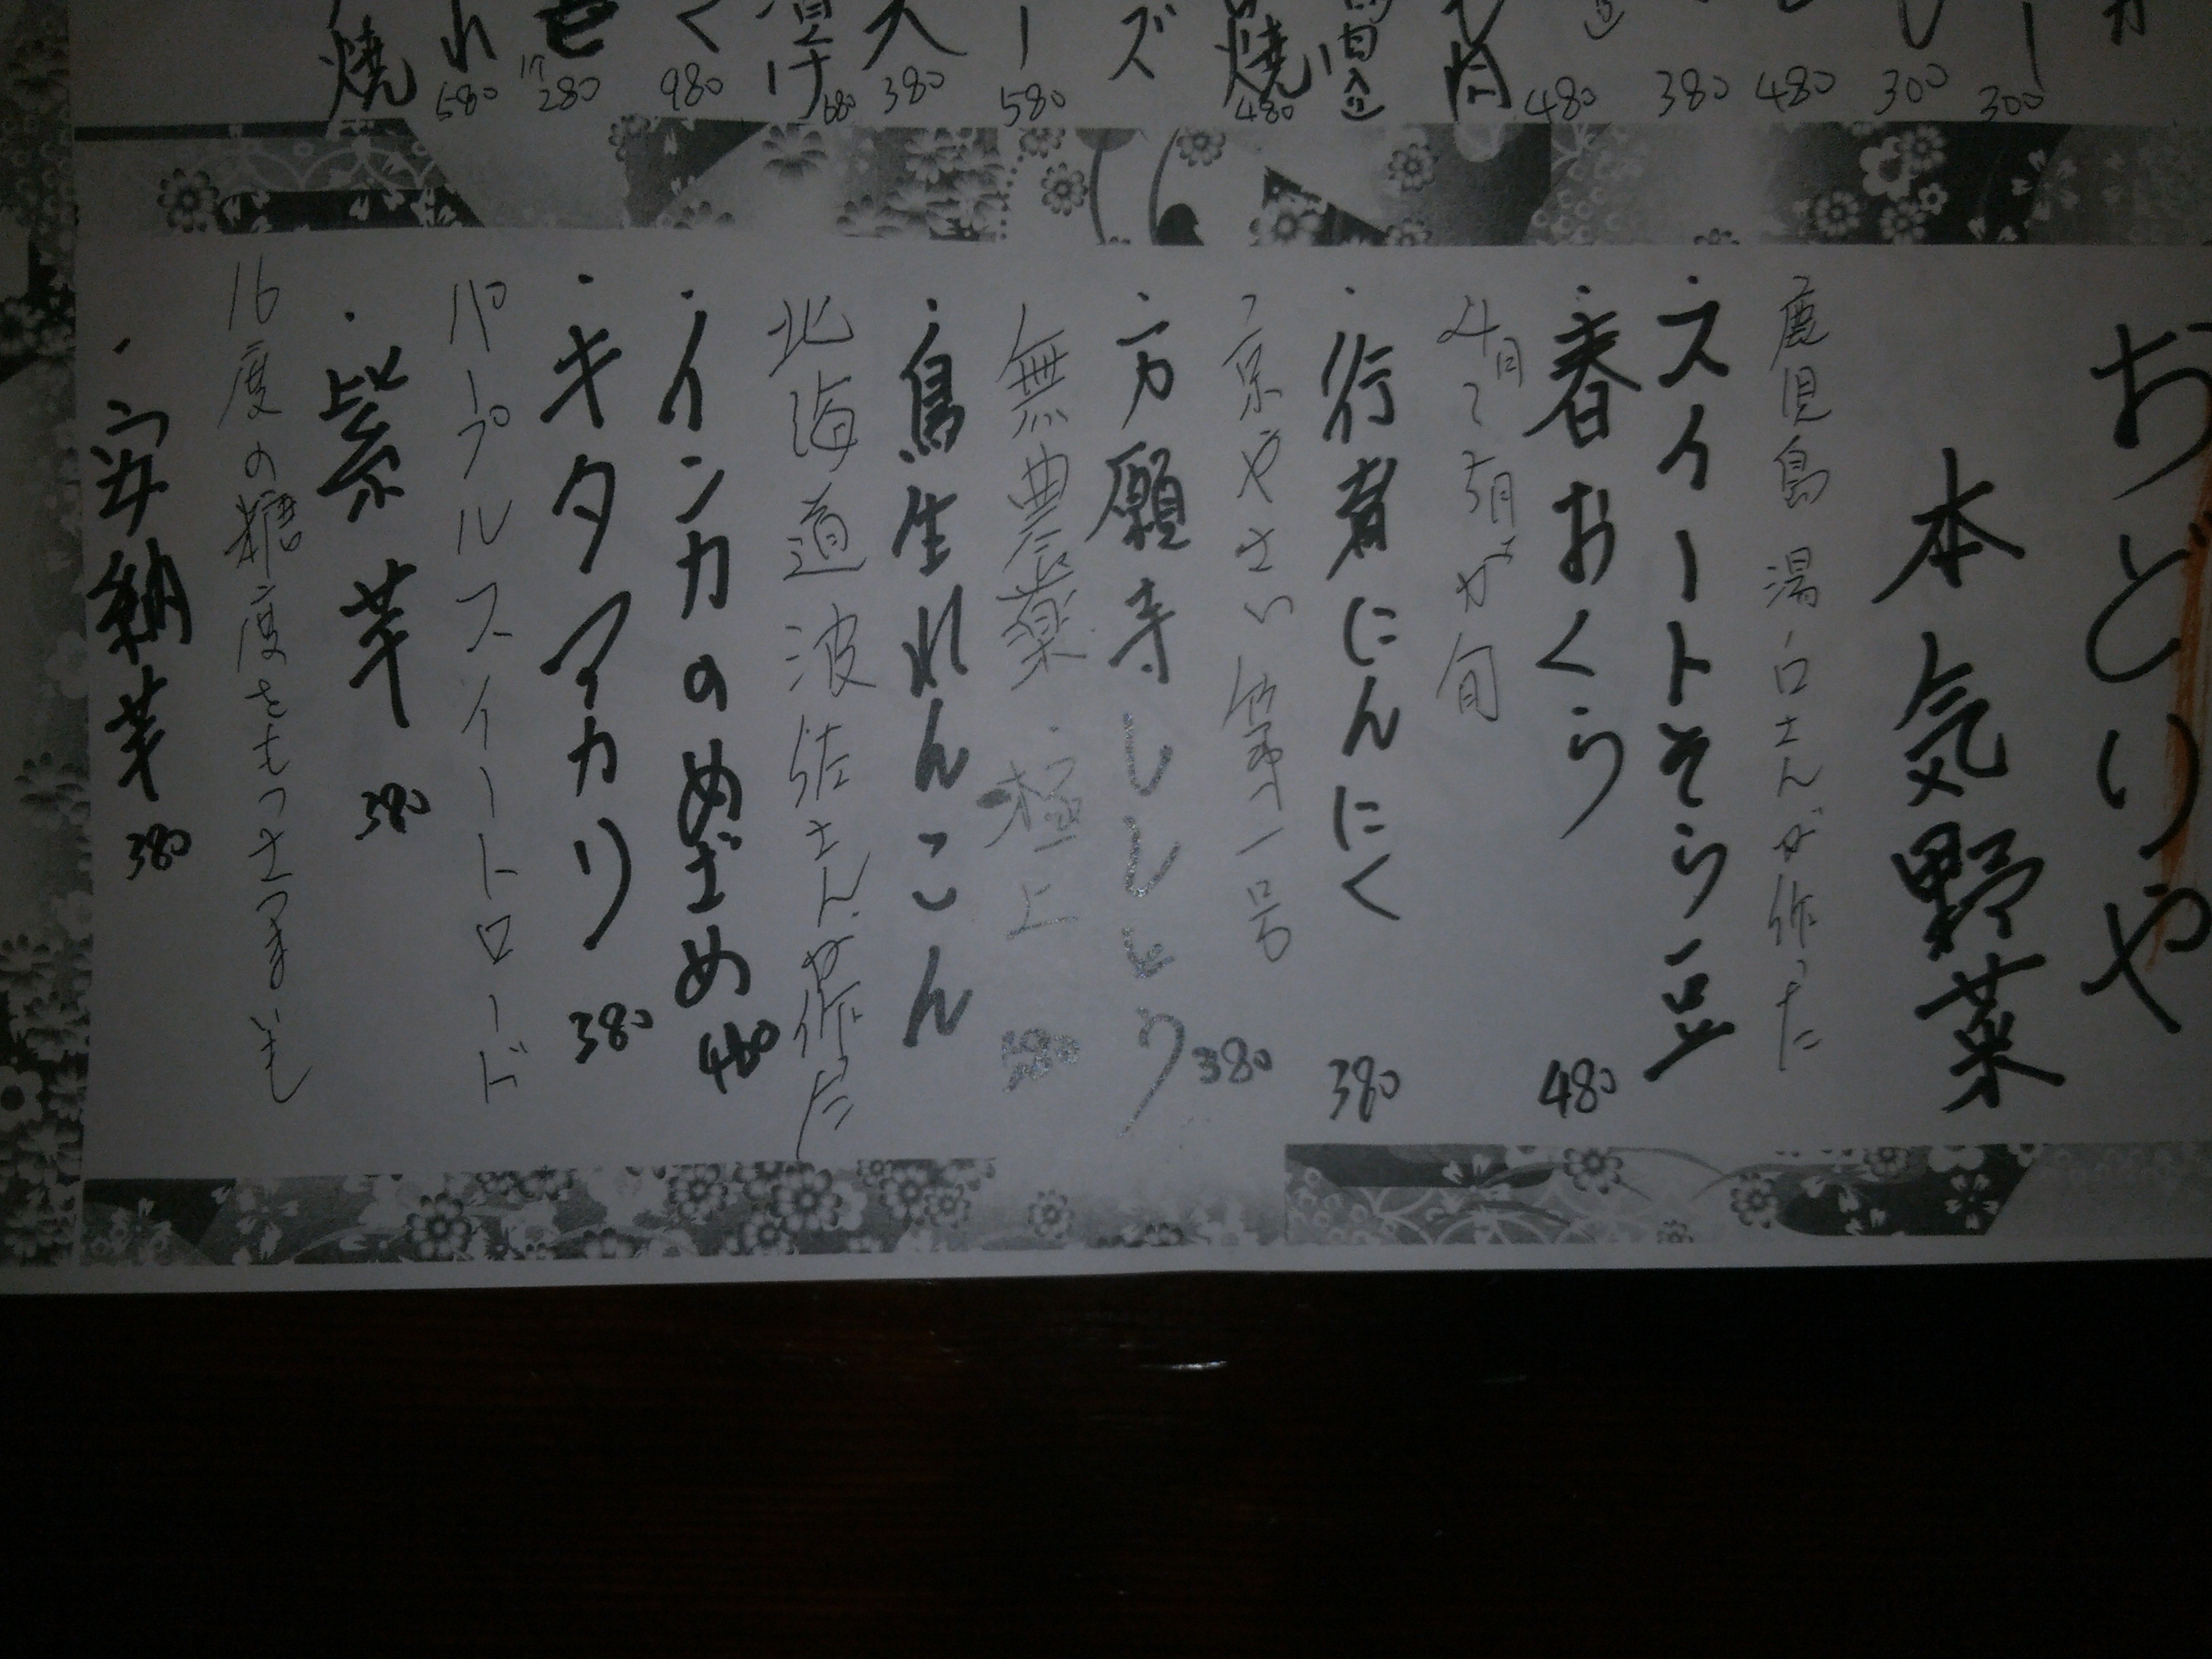 焼
れ 580
280
く 980
け 680
ス 380
ー 580
ズ
焼 480
肉
480
380
480
し 300
ー 300
おどりや
本気野菜
鹿児島 湯ノ口さんが作った
・スイートそら豆
・春おくら 480
4月〜5月が旬
・行者にんにく 380
京やさい 第一号
・万願寺ししとう 380
無農薬 極上 580
・鳥生れんこん
北海道 波佐さんが作た
・インカのめざめ 480
・キタアカリ 380
パープルスイートロード
・紫芋 380
16度の糖度をもつさつまいも
・安納芋 380